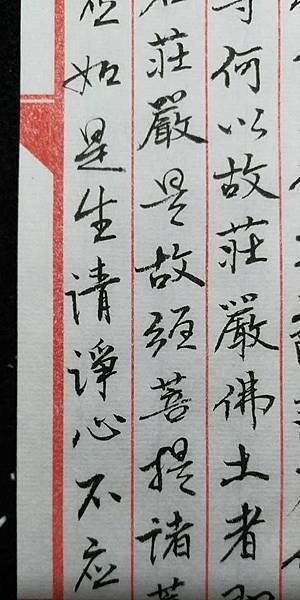 何以故莊嚴佛土者
莊嚴是故須菩提諸菩
应如是生清淨心不应